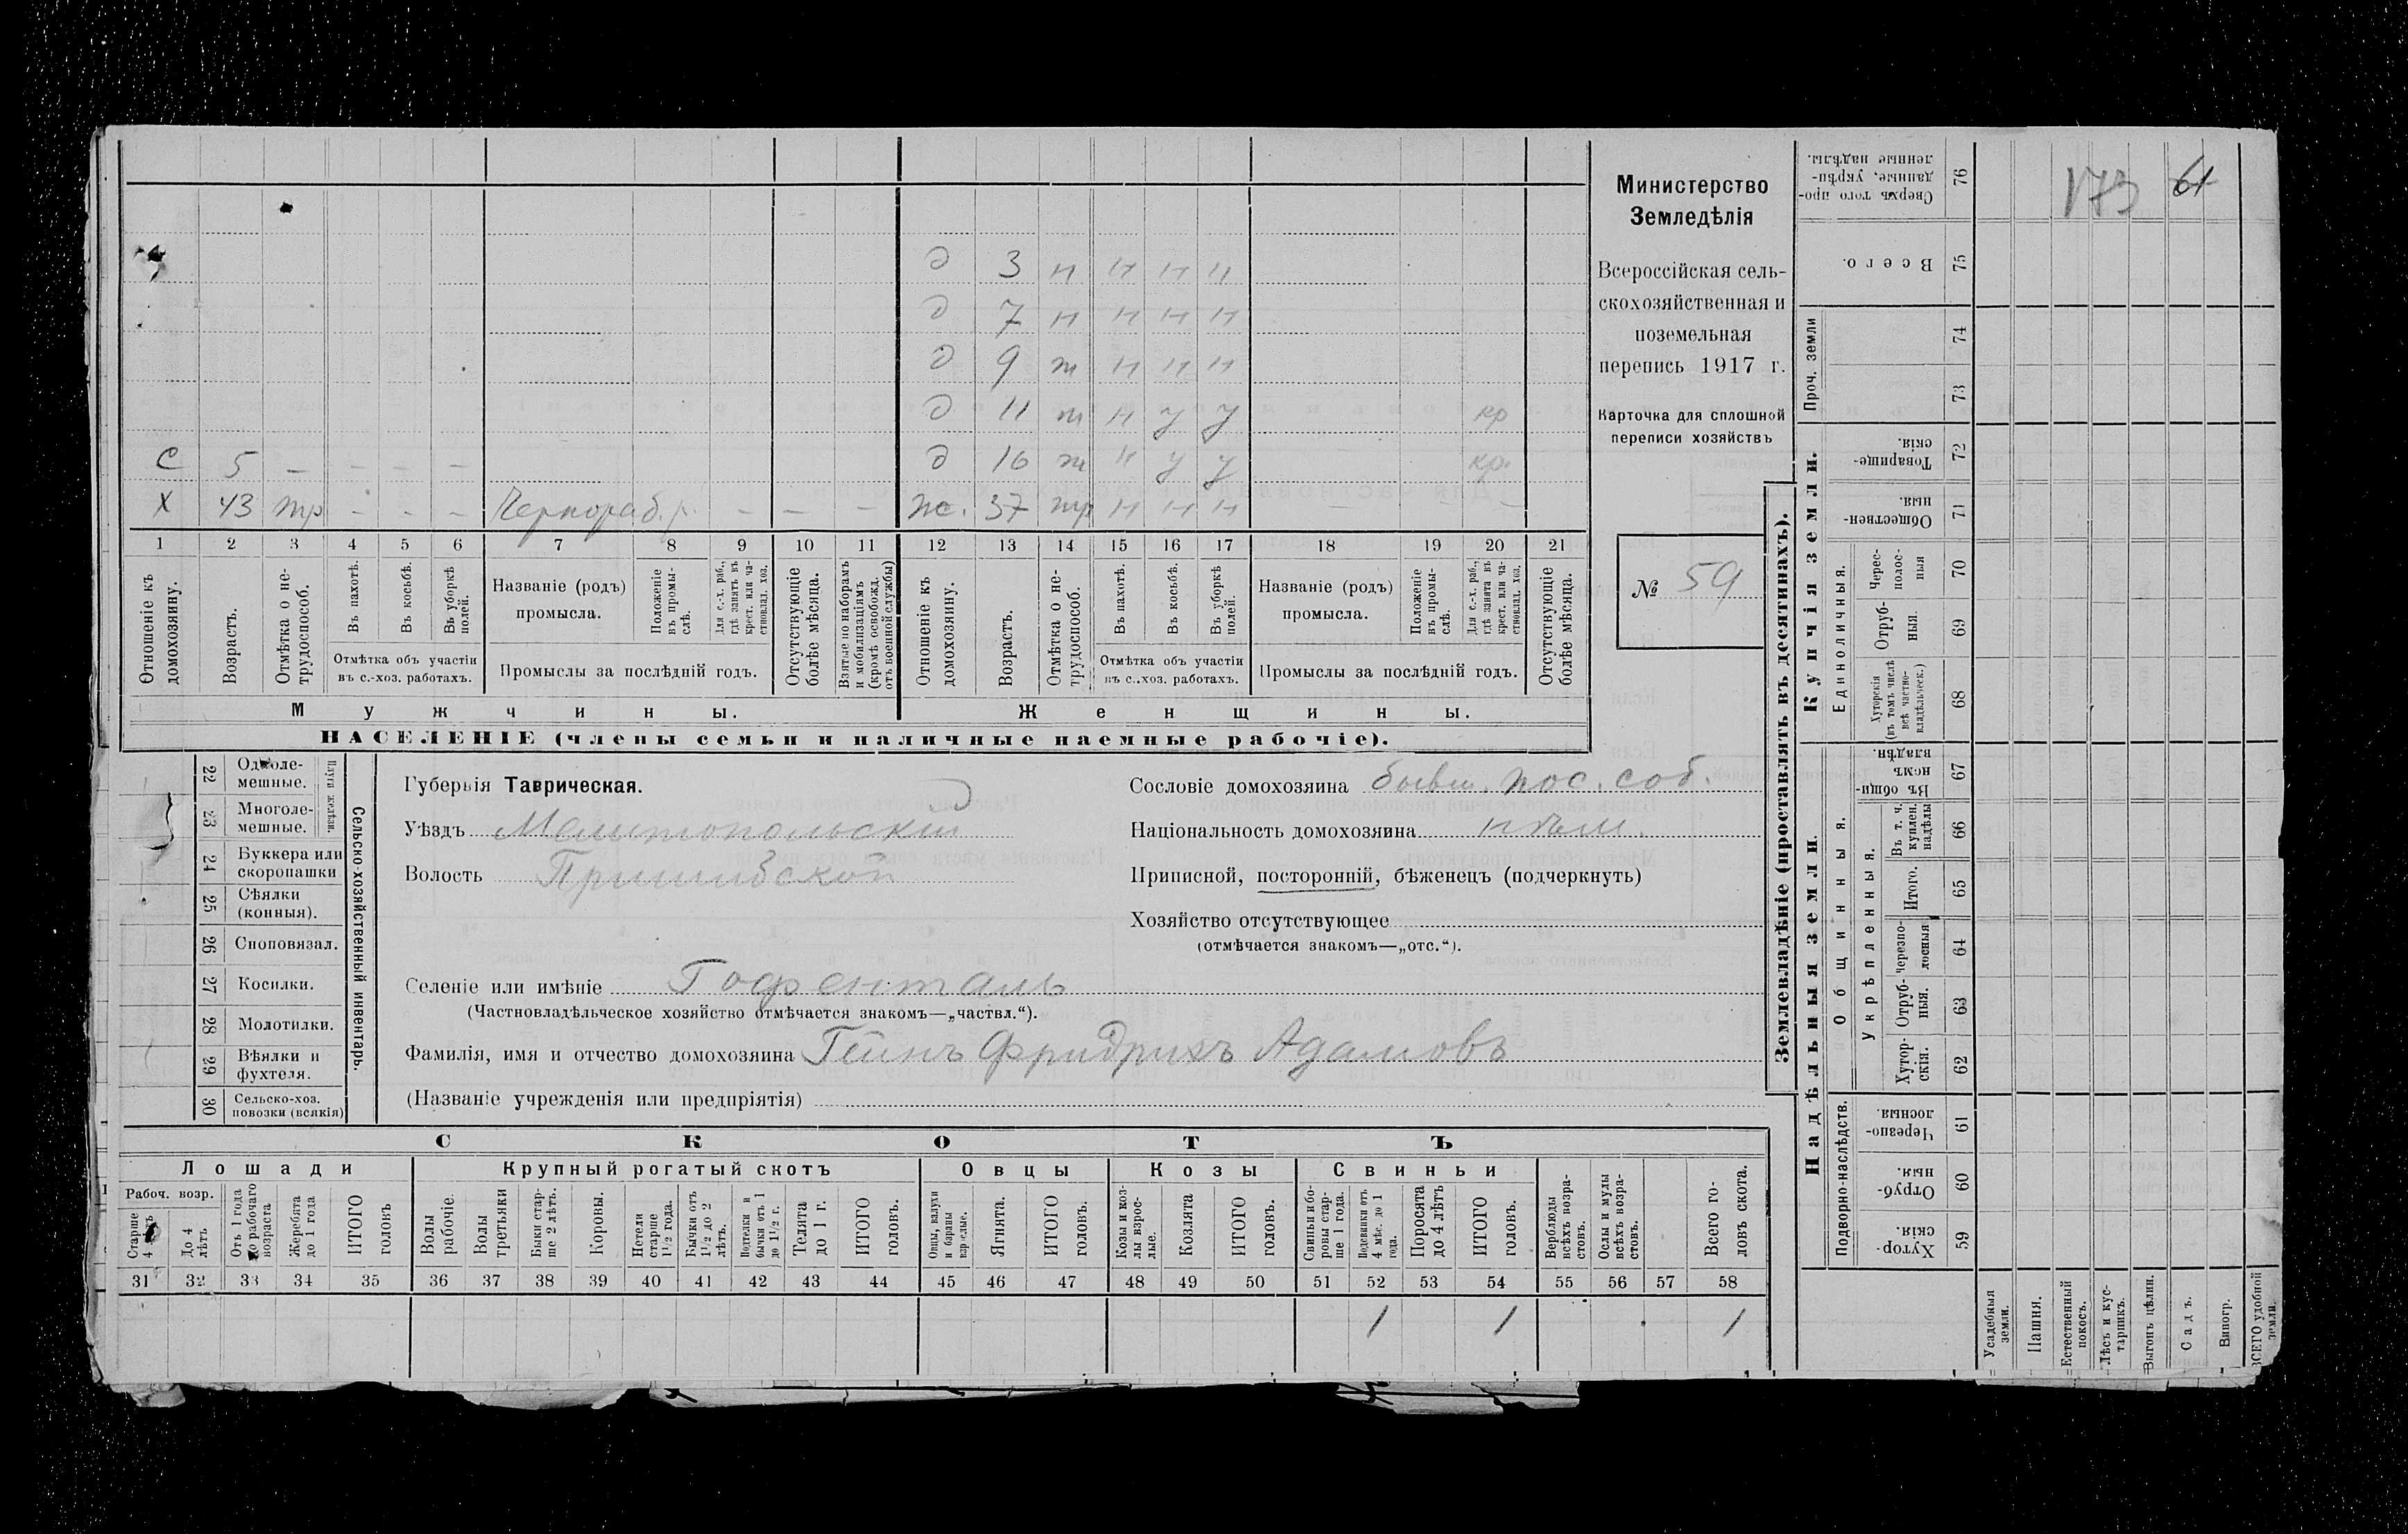 173 61
Министерство
Земледѣлія
Всероссійская сель-
скохозяйственная и
поземельная
перепись 1917 г.
Карточка для сплошной
переписи хозяйствъ
№ 59
д 3 н н н н
д 7 н н н н
д 9 т н н н
д 11 т н у у кр
С 5 – – – – д 16 т н у у кр.
Х 43 тр – – – Чернораб. р. – – – ж. 37 тр н н н – – – –
1 2 3 4 5 6 7 8 9 10 11 12 13 14 15 16 17 18 19 20 21
Отношеніе къ домохозяину.
Возрастъ.
Отмѣтка о не-трудоспособ.
Въ пахотѣ.
Въ косьбѣ.
Въ уборкѣ полей.
Отмѣтка объ участіи
въ с.-хоз. работахъ.
Названіе (родъ)
промысла.
Положеніе въ промы-слѣ.
Для с.-х. раб., гдѣ занятъ въ крест. или ча-стновлад. хоз.
Промыслы за послѣдній годъ.
Отсутствующіе болѣе мѣсяца.
Взятые по наборамъ и мобилизаціямъ (кромѣ освобожд. отъ военной службы)
Отношеніе къ домохозяину.
Возрастъ.
Отмѣтка о не-трудоспособ.
Въ пахотѣ.
Въ косьбѣ.
Въ уборкѣ полей.
Отмѣтка объ участіи
въ с.-хоз. работахъ.
Названіе (родъ)
промысла.
Положеніе въ промы-слѣ.
Для с.-х. раб., гдѣ занята въ крест. или ча-стновлад. хоз.
Промыслы за послѣдній годъ.
Отсутствующіе болѣе мѣсяца.
Мужчины. Женщины.
НАСЕЛЕНІЕ (члены семьи и наличные наемные рабочіе).
22 Одноле-мешные.
23 Многоле-мешные.
Плуги желѣзн.
24 Буккера или скоропашки
25 Сѣялки (конныя).
26 Сноповязал.
27 Косилки.
28 Молотилки.
29 Вѣялки и фухтеля.
30 Сельско-хоз. повозки (всякія)
Сельско-хозяйственный инвентарь.
Губернія Таврическая.
Уѣздъ Мелитопольскій
Волость Пришибской
Сословіе домохозяина бывш. пос. соб.
Національность домохозяина нѣм.
Приписной, посторонній, бѣженецъ (подчеркнуть)
Хозяйство отсутствующее
(отмѣчается знакомъ—„отс.“).
Селеніе или имѣніе Гофенталь
(Частновладѣльческое хозяйство отмѣчается знакомъ—„частвл.“).
Фамилія, имя и отчество домохозяина Гейнъ Фридрихъ Адамовъ
(Названіе учрежденія или предпріятія)
СКОТЪ
Лошади Крупный рогатый скотъ Овцы Козы Свиньи
Рабоч. возр.
Старше 4 лѣтъ
До 4 лѣтъ
Отъ 1 года до рабочаго возраста
Жеребята до 1 года
ИТОГО головъ
Волы рабочіе.
Волы третьяки
Быки стар-ше 2 лѣтъ.
Коровы.
Нетели старше 1½ года.
Бычки отъ 1½ до 2 лѣтъ.
Подтелки и бычки отъ 1 до 1½ г.
Телята до 1 г.
ИТОГО головъ.
Овцы, валухи и бараны взрослые.
Ягнята.
ИТОГО головъ.
Козы и коз-лы взрос-лые.
Козлята
ИТОГО головъ.
Свиньи и бо-ровы стар-ше 1 года.
Подсвинки отъ 4 мѣс. до 1 года.
Поросята до 4 лѣтъ
ИТОГО головъ.
Верблюды всѣхъ возра-стовъ.
Ослы и мулы всѣхъ возра-стовъ.
Всего го-ловъ скота.
31 32 33 34 35 36 37 38 39 40 41 42 43 44 45 46 47 48 49 50 51 52 53 54 55 56 57 58
1 1 1
Землевладѣніе (проставлять въ десятинахъ).
Сверхъ того про-данные, укрѣп-ленные надѣлы. 76
Всего. 75
Проч. земли 74 73
Купчія земли.
Товарище-скія. 72
Обществен-ныя. 71
Единоличныя.
Черес-полос-ныя 70
Отруб-ныя. 69
Хуторскія (въ томъ числѣ всѣ частно-владѣльческ.) 68
Надѣльныя земли.
Общинныя.
Въ общи-номъ владѣн. 67
Укрѣпленныя.
Въ т. ч. куплен. надѣлы 66
Итого. 65
Черезпо-лосныя 64
Отруб-ныя. 63
Хутор-скія. 62
Подворно-наслѣдств.
Черезпо-лосныя. 61
Отруб-ныя. 60
Хутор-скія. 59
Усадебныя земли.
Пашня.
Естественный покосъ.
Лѣсъ и кус-тарникъ.
Выгонъ цѣлин.
Садъ.
Виногр.
ВСЕГО удобной земли.